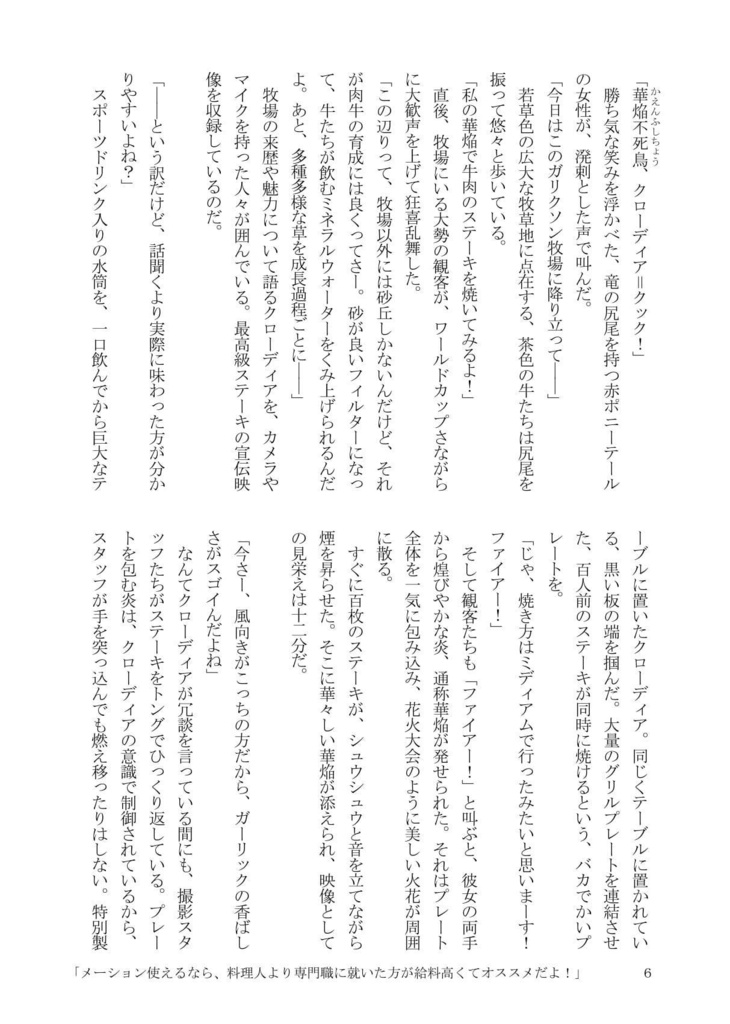 「華焔不死鳥、クローディア＝クック！」
かえんふしちょう
勝ち気な笑みを浮かべた、竜の尻尾を持つ赤ポニーテール
の女性が、溌剌とした声で叫んだ。
「今日はこのガリクソン牧場に降り立って――」
若草色の広大な牧草地に点在する、茶色の牛たちは尻尾を
振って悠々と歩いている。
「私の華焔で牛肉のステーキを焼いてみるよ！」
直後、牧場にいる大勢の観客が、ワールドカップさながら
に大歓声を上げて狂喜乱舞した。
「この辺りって、牧場以外には砂丘しかないんだけど、それ
が肉牛の育成には良くってさー。砂が良いフィルターになっ
て、牛たちが飲むミネラルウォーターをくみ上げられるんだ
よ。あと、多種多様な草を成長過程ごとに――」
牧場の来歴や魅力について語るクローディアを、カメラや
マイクを持った人々が囲んでいる。最高級ステーキの宣伝映
像を収録しているのだ。
「――という訳だけど、話聞くより実際に味わった方が分か
りやすいよね？」
スポーツドリンク入りの水筒を、一口飲んでから巨大なテ
ーブルに置いたクローディア。同じくテーブルに置かれてい
る、黒い板の端を掴んだ。大量のグリルプレートを連結させ
た、百人前のステーキが同時に焼けるという、バカでかいプ
レートを。
「じゃ、焼き方はミディアムで行ったみたいと思いまーす！
ファイアー！」
そして観客たちも「ファイアー！」と叫ぶと、彼女の両手
から煌びやかな炎、通称華焔が発せられた。それはプレート
全体を一気に包み込み、花火大会のように美しい火花が周囲
に散る。
すぐに百枚のステーキが、シュウシュウと音を立てながら
煙を昇らせた。そこに華々しい華焔が添えられ、映像として
の見栄えは十二分だ。
「今さー、風向きがこっちの方だから、ガーリックの香ばし
さがスゴイんだよね」
なんてクローディアが冗談を言っている間にも、撮影スタ
ッフたちがステーキをトングでひっくり返している。プレー
トを包む炎は、クローディアの意識で制御されているから、
スタッフが手を突っ込んでも燃え移ったりはしない。特別製
「メーション使えるなら、料理人より専門職に就いた方が給料高くてオススメだよ！」
6